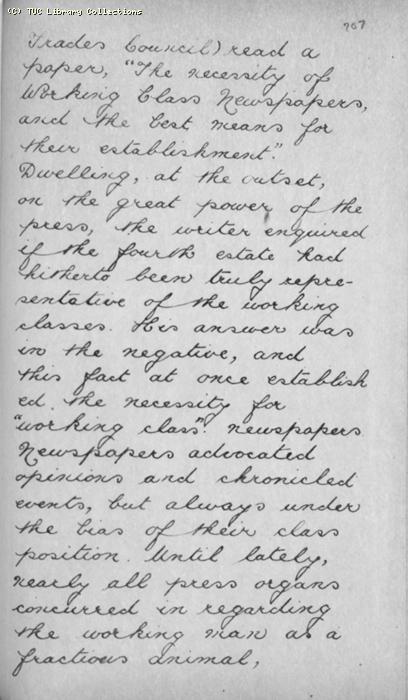 (C) TUC Library Collections
707
Trades Council) read a
paper, "The necessity of
Working Class Newspapers,
and the best means for
their establishment."
Dwelling, at the outset,
on the great power of the
press, the writer enquired
if the fourth estate had
hitherto been truly repre-
sentative of the working
classes. His answer was
in the negative, and
this fact at once establish
ed. the necessity for
"working class" newspapers
Newspapers advocated
opinions and chronicled
events, but always under
the bias of their class
position. Until lately,
nearly all press organs
concurred in regarding
the working man as a
fractious animal,